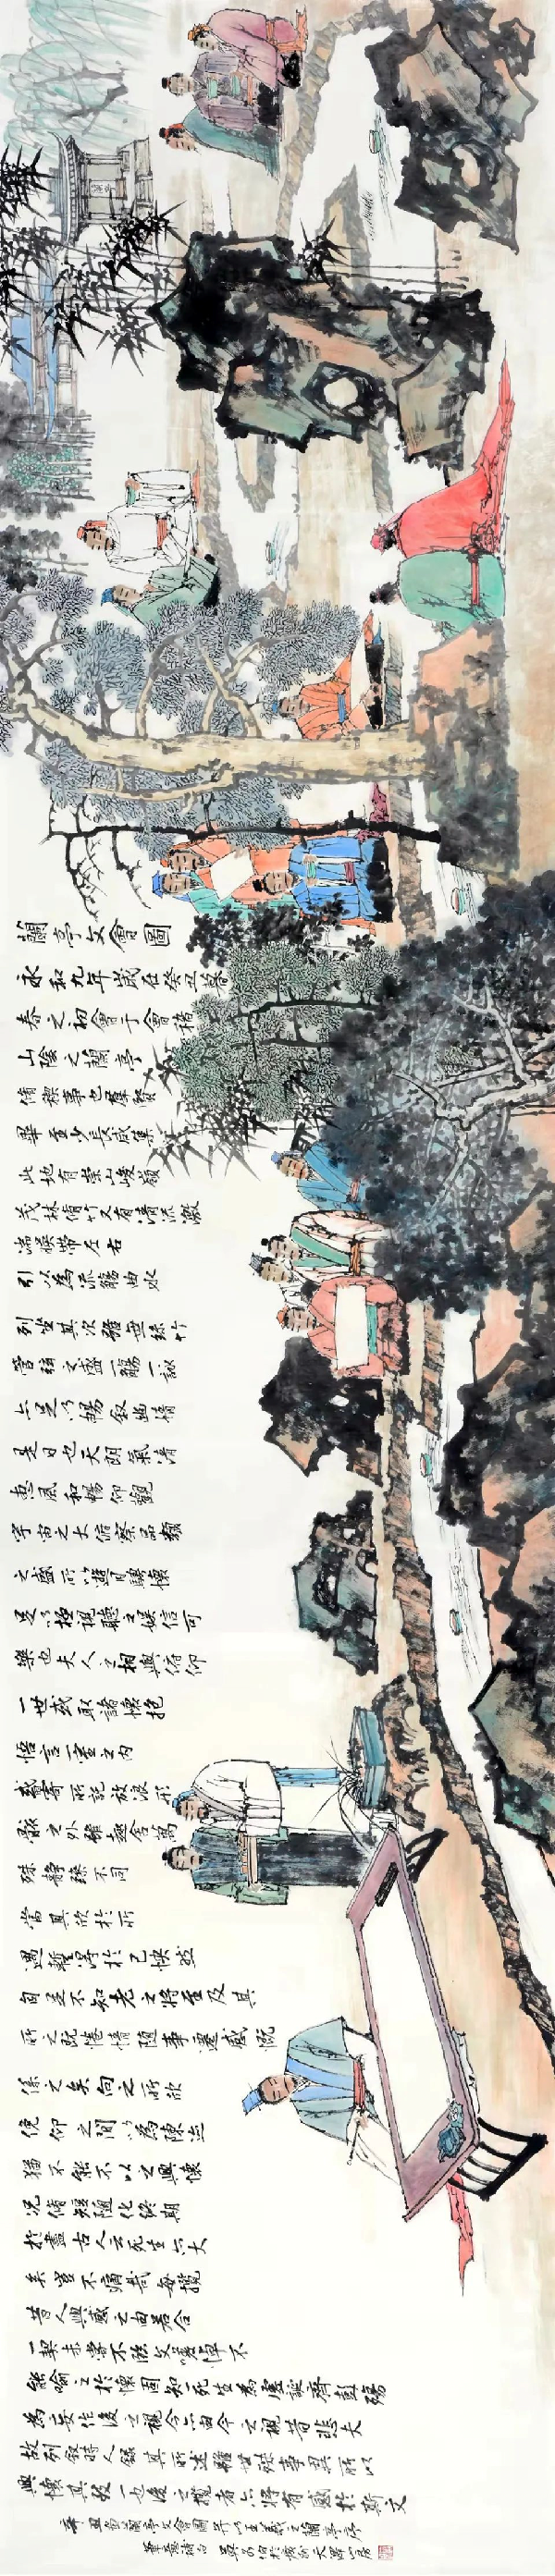 蘭亭文會圖
永和九年歲在癸丑暮
春之初會于會稽
山陰之蘭亭
脩禊事也羣賢
畢至少長咸集
此地有崇山峻嶺
茂林脩竹又有清流激
湍暎帶左右
引以為流觴曲水
列坐其次雖無絲竹
管絃之盛一觴一詠
亦足以暢敘幽情
是日也天朗氣清
惠風和暢仰觀
宇宙之大俯察品類
之盛所以遊目騁懷
足以極視聽之娛信可
樂也夫人之相與俯仰
一世或取諸懷抱
悟言一室之內
或寄所託放浪形
骸之外雖趣舍萬
殊靜躁不同
當其欣於所
遇暫得於己怏然
自足不知老之將至及其
所之既惓情隨事遷感慨
係之矣向之所欣
俛仰之間以為陳迹
猶不能不以之興懷
況脩短隨化終期
於盡古人云死生亦大
矣豈不痛哉每攬
昔人興感之由若合
一契未嘗不臨文嗟悼不
能喻之於懷固知死生為虛誕齊彭殤
為妄作後之視今亦由今之視昔悲夫
故列敘時人錄其所述雖世殊事異所以
興懷其致一也後之攬者亦將有感於斯文
辛丑畫蘭亭文會圖并以王羲之蘭亭序
筆意補白